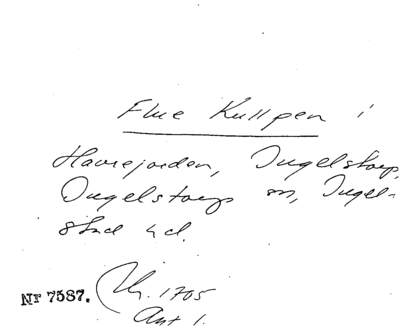 Flue Kullpen i
Havrejorden, Ingelstorp,
Ingelstorps sn, Ingel-
stad hd.
Nr 7587. Ur. 1705
Ant 1.